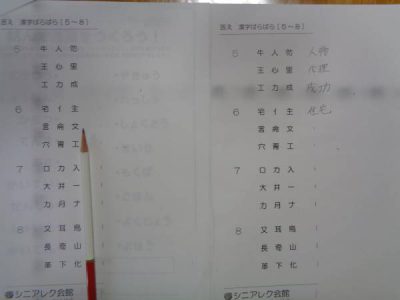 答え 漢字ばらばら［5～8］
5 牛 人 勿
王 心 里
工 力 成
6 宅 イ 主
言 侖 文
穴 電 工
7 口 力 入
大 井 一
力 月 ナ
8 又 耳 鳥
長 奇 山
革 下 化
シニアレク会館
答え 漢字ばらばら［5～8］
5 牛 人 勿 人物
王 心 里 心理
工 力 成 成功
6 宅 イ 主 住宅
言 侖 文
穴 電 工
7 口 力 入
大 井 一
力 月 ナ
8 又 耳 鳥
長 奇 山
革 下 化
シニアレク会館